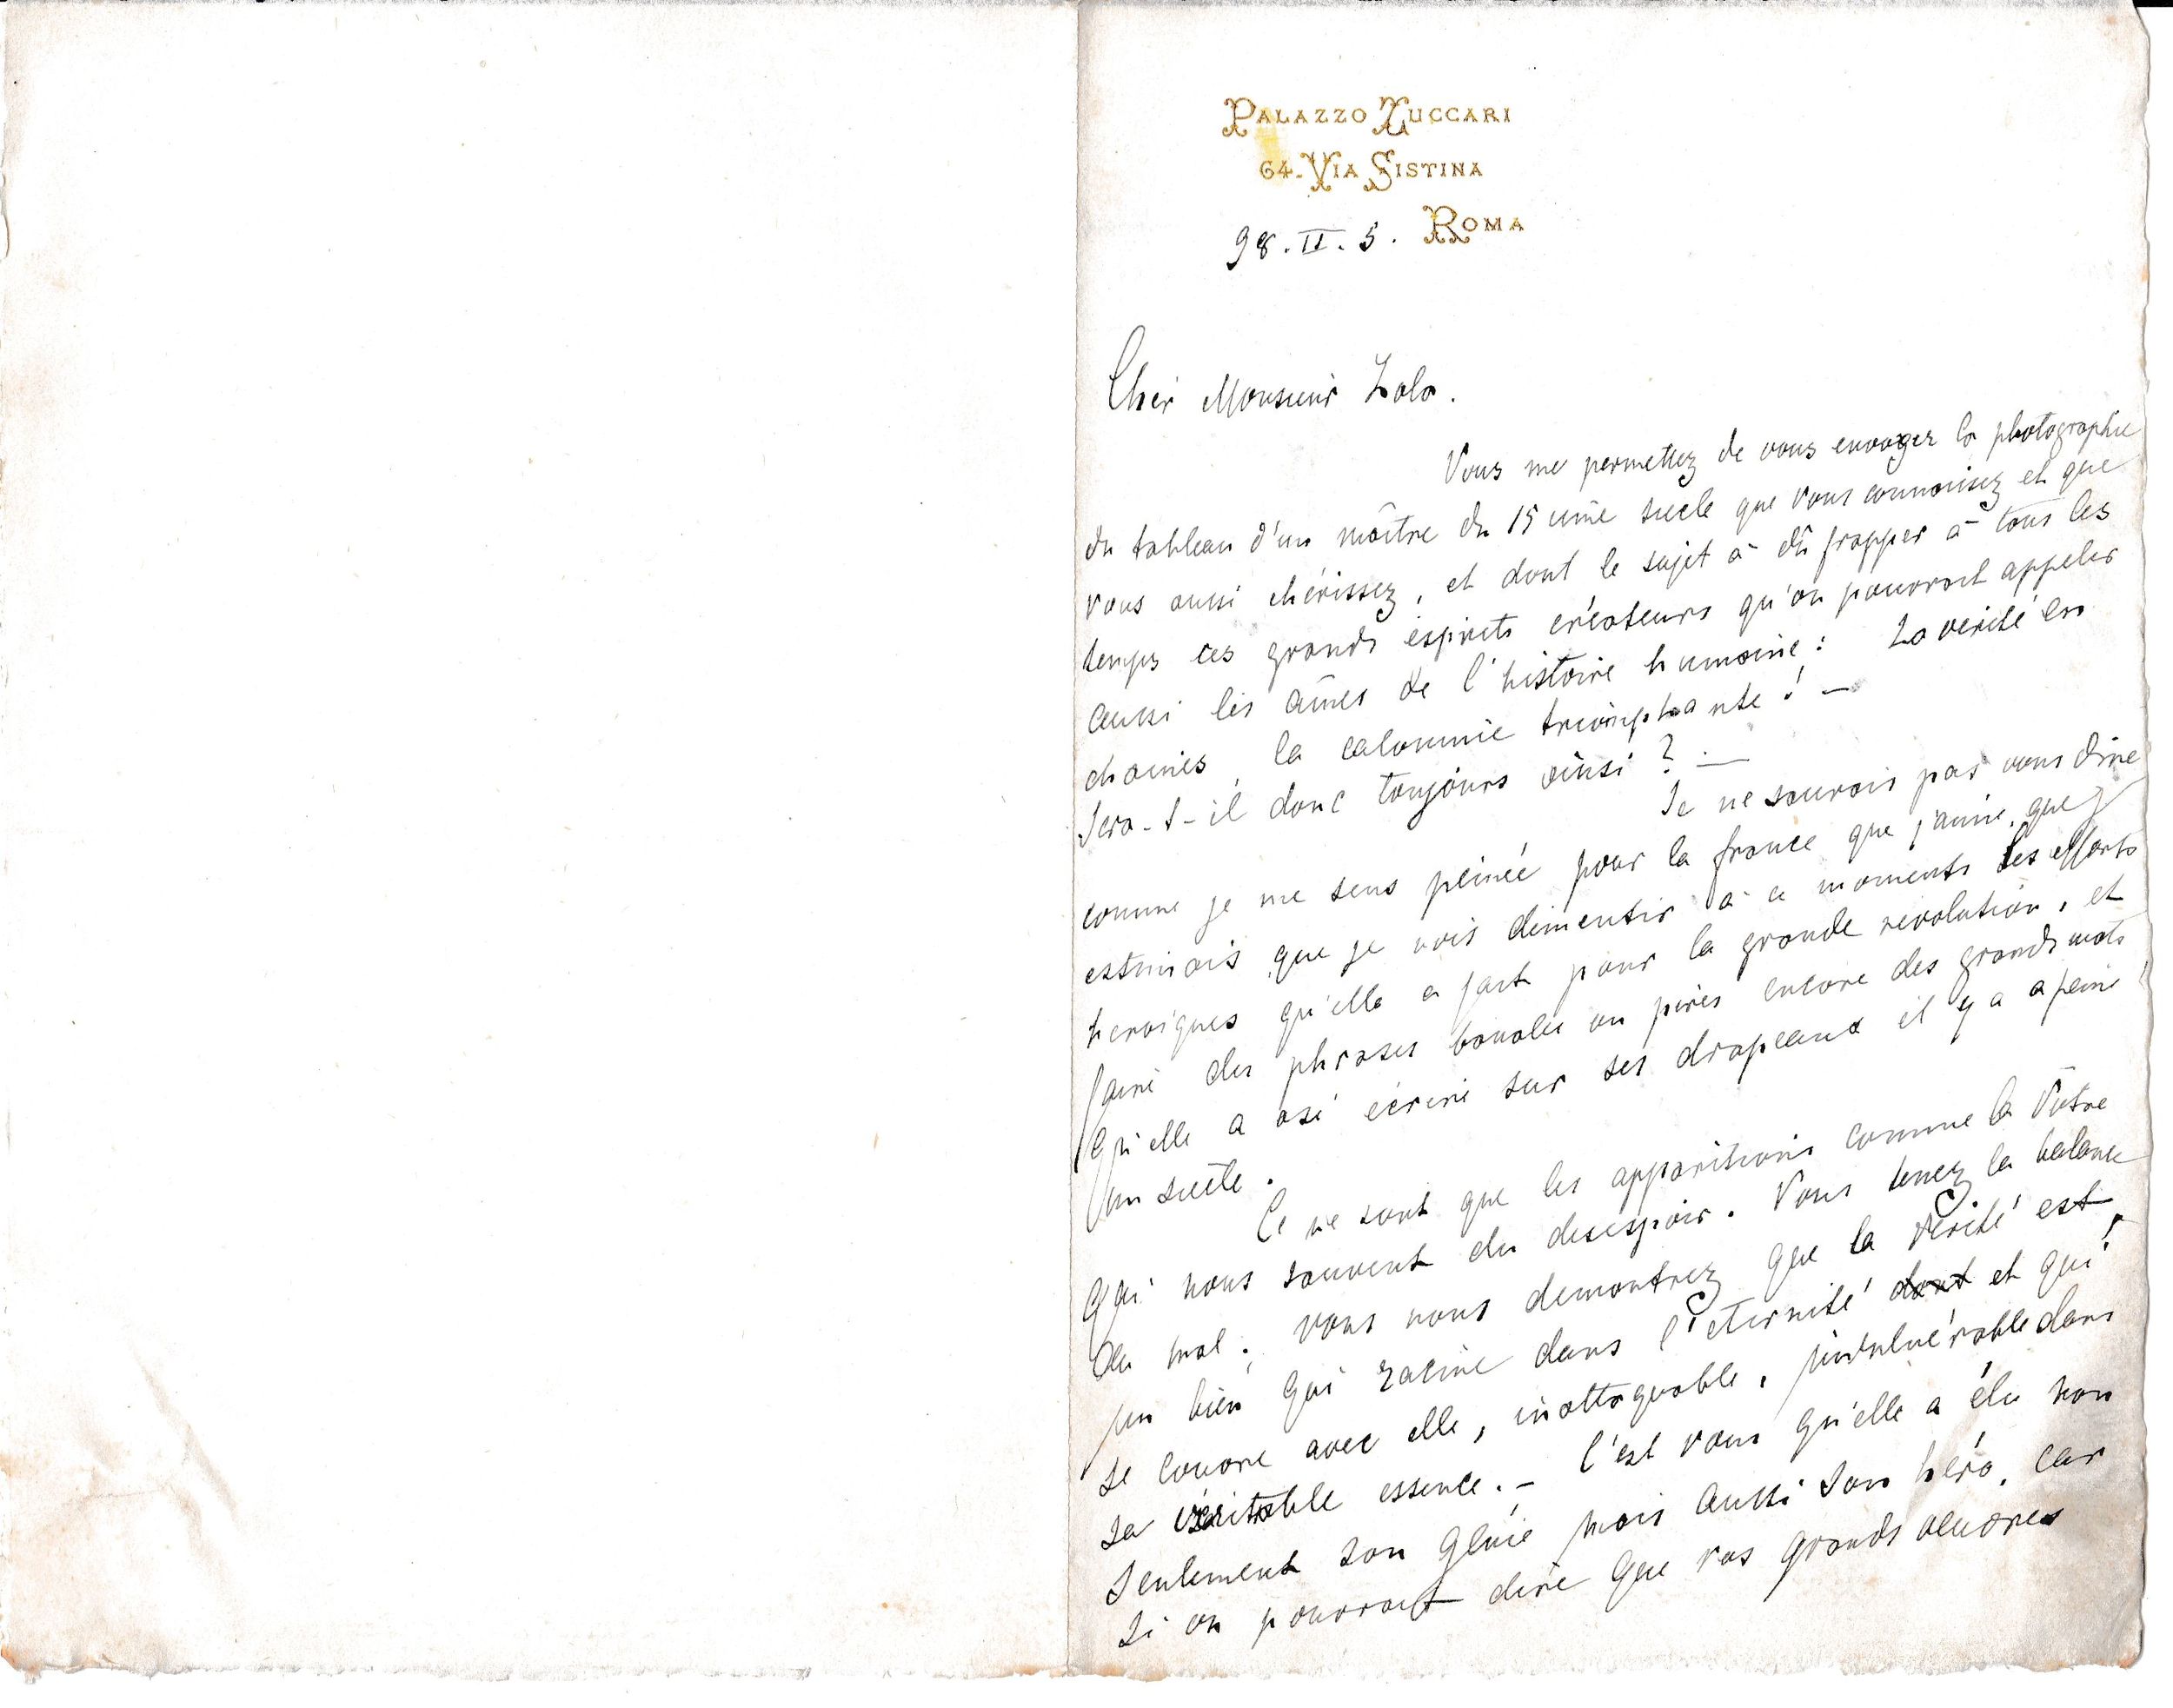 PALAZZO ZUCCARI
64. VIA SISTINA
ROMA
98. II. 5.
Cher Monsieur Zola.
Vous me permettez de vous envoyer la photographie
du tableau d'un maître du 15 ième siecle que vous connaisez et que
vous aussi chérissez, et dont le sujet à dû frapper à tous les
temps ces grands ésprits créateurs qu'on pourrait appeler
aussi les âmes de l'histoire humaine: La verité en
chaines, la calomnie triomphante! —
Sera-t-il donc toujours ainsi? —
Je ne saurais pas vous dire
comme je me sens peinée pour la france que j'aime, que j'
estimais que je vois dementir à ce moments les efforts
heroiques qu'elle a fait pour la grande revolution, et
faire des phrases banales ou pires encore des grands mots
qu'elle a osé écrire sur ses drapeaux il y a a peine
un siecle.
Ce ne sont que les apparitions comme la Vôtre
qui nous sauvent du desespoir. Vous tenez la balance
du mal; vous nous demontrez que la verité est,
un bien qui racine dans l'éternité dont et qui
se couvre avec elle, inattaquable, invulnérable dans
sa véritable essence. – C'est vous qu'elle a élu non
seulement son génie mais aussi son héro, car
si on pourrait dire que vos grands oeuvres